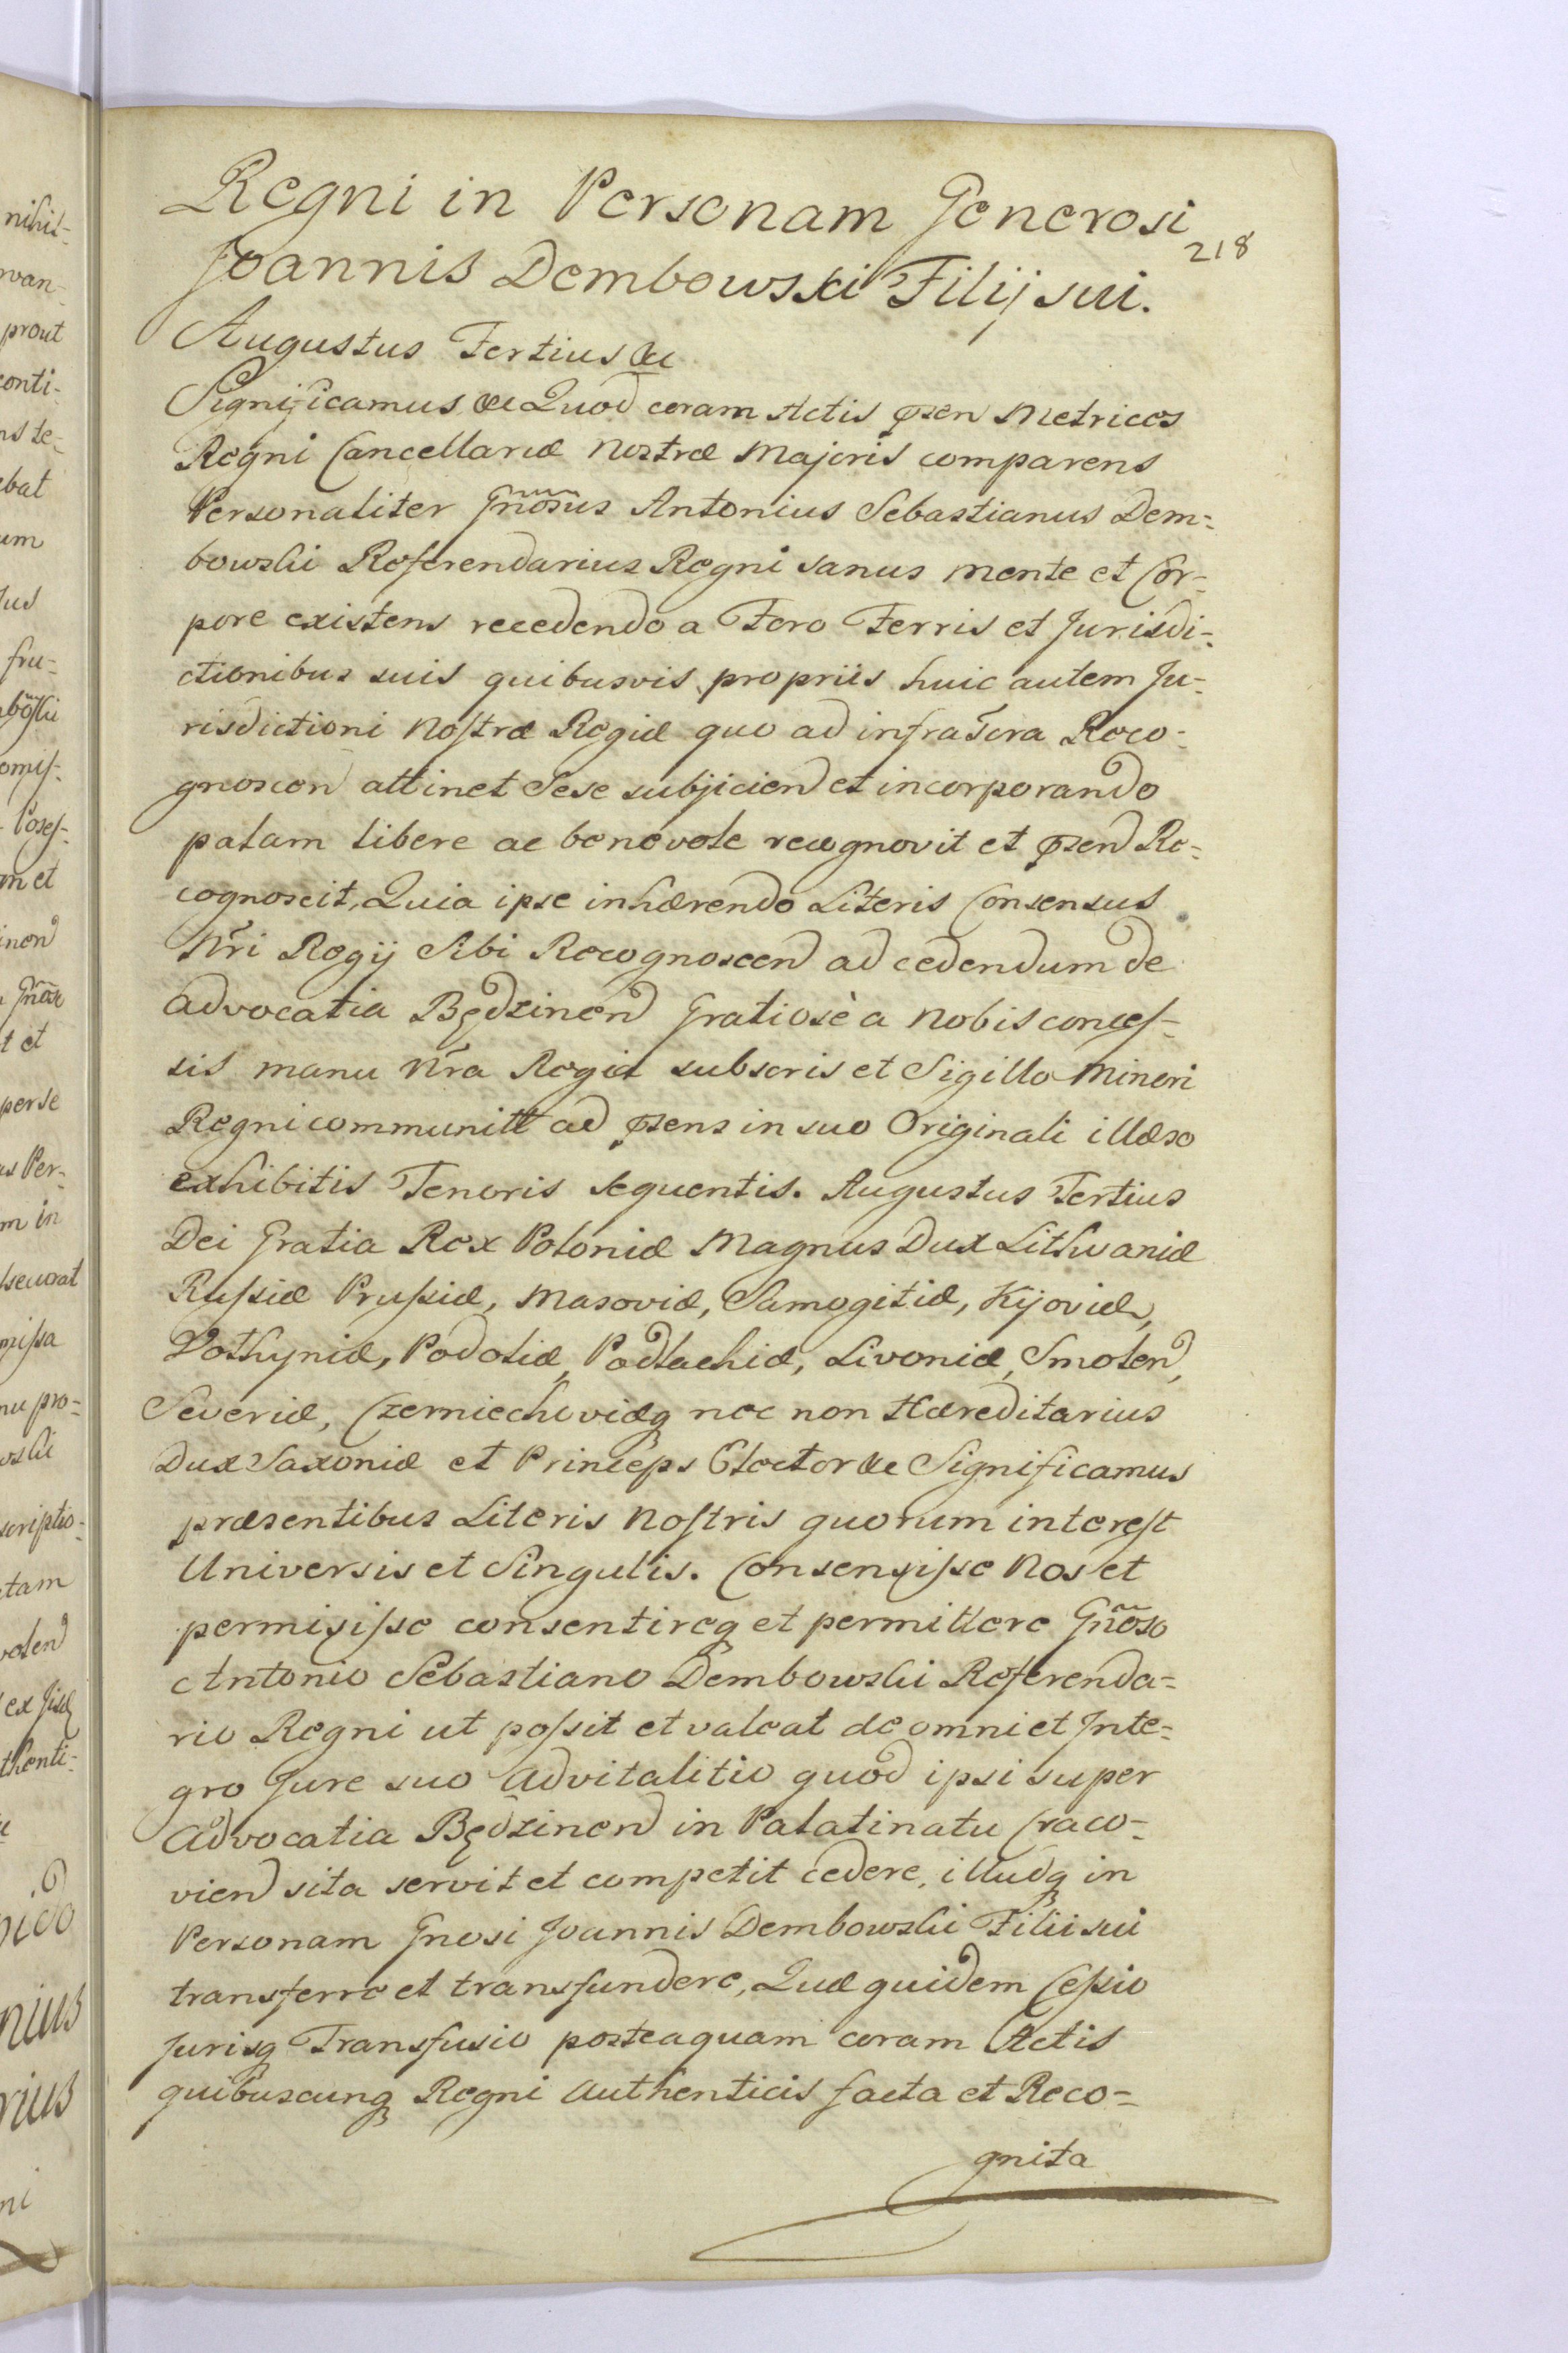 Regni in Personam Generosi
218
Joannis Dembowski Filij sui.
Augustus Tertius &c
Significamus &c Quod coram Actis p̄sen Metrices
Regni Cancellariæ Nostræ Majoris comparens
Personaliter Gn̄osus Antonius Sebastianus Dem-
bowski Referendarius Regni sanus mente et Cor-
pore existens recedendo a Foro Terris et Jurisdi-
ctionibus suis quibusvis propriis huic autem Ju-
risdictioni Nostræ Regiæ quo ad infrascra Reco-
gnoscen attinet Sese subjicien et incorporando
palam libere ac benevole recognovit et p̄sen Re-
cognoscit, Quia ipse inhærendo Literis Consensus
Nr̄i Regij Sibi Recognoscen ad cedendum de
Advocatia Będzinen Gratiosè a Nobis conces-
sis manu Nr̄a Regia subscris et Sigillo Minori
Regni communitt ad p̄sens in suo Originali illæso
exhibitis Tenoris sequentis. Augustus Tertius
Dei Gratia Rex Poloniæ Magnus Dux Lithuaniæ
Russiæ Prussiæ, Masoviæ, Samogitiæ, Kijoviæ,
Volhyniæ, Podoliæ, Podlachiæ, Livoniæ, Smolen,
Severiæ, Czerniechoviæq nec non Hæreditarius
Dux Saxoniæ et Princeps Elector &c Significamus
præsentibus Literis Nostris quorum interest
Universis et Singulis. Consensisse Nos et
permisisse consentireq et permittere Gn̄oso
Antonio Sebastiano Dembowski Referenda-
rio Regni ut possit et valeat de omni et Inte-
gro Jure suo Advitalitio quod ipsi super
Advocatia Będzinen in Palatinatu Craco-
vien sita servit et competit cedere, illudq in
Personam Gnosi Joannis Dembowski Filii sui
transferre et transfundere, Quæ quidem Cessio
Jurisq Transfusio posteaquam coram Actis
quibuscunq Regni Authenticis facta et Reco-
gnita